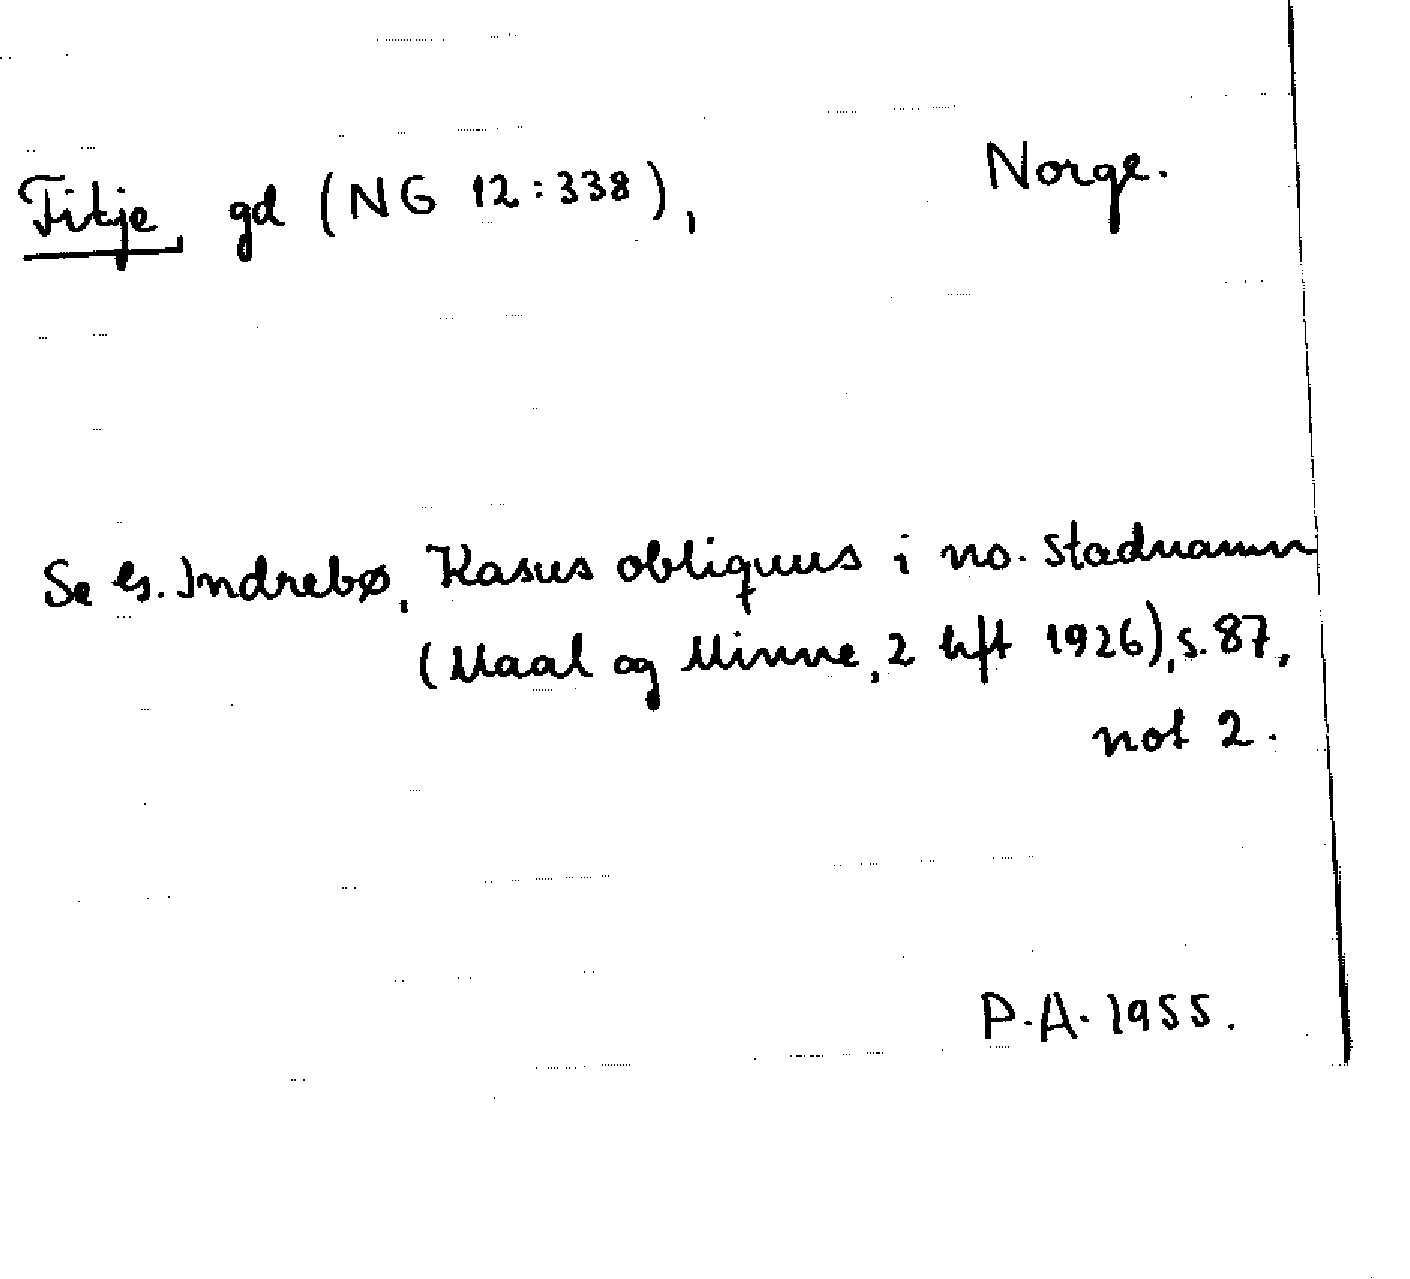 Fitje, gd (NG 12:338), Norge.
Se G. Indrebø, Kasus obliquus i no. stadnamn
(Maal og Minne, 2 hft 1926), s. 87,
not 2.
P.A. 1955.